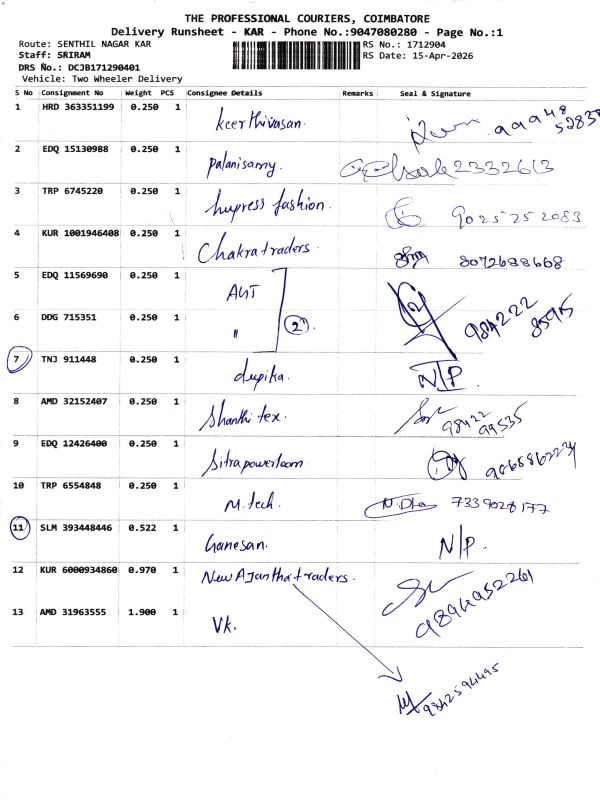 THE PROFESSIONAL COURIERS, COIMBATORE
Delivery Runsheet - KAR - Phone No.:9047080280 - Page No.:1
Route: SENTHIL NAGAR KAR
RS No.: 1712904
Staff: SRIRAM
RS Date: 15-Apr-2026
DRS No.: DCJB171290401
Vehicle: Two Wheeler Delivery
S No Consignment No Weight PCS Consignee Details Remarks Seal & Signature
1 HRD 363351199 0.250 1 Keerthivasan. 99948 52838
2 EDQ 15130988 0.250 1 Palanisamy. 2332613
3 TRP 6745220 0.250 1 hupress fashion. 9025252083
4 KUR 1001946408 0.250 1 Chakra traders. 8072688668
5 EDQ 11569690 0.250 1 AGT
6 DDG 715351 0.250 1 " 2 984222 8595
7 TNJ 911448 0.250 1 dupika. N/P.
8 AMD 32152407 0.250 1 Shanthi tex. 98422 99535
9 EDQ 12426400 0.250 1 Sitrapowerloom
10 TRP 6554848 0.250 1 M.tech. 7339028177
11 SLM 393448446 0.522 1 Ganesan. N/P.
12 KUR 6000934860 0.970 1 New Ajantha traders. 9894952261
13 AMD 31963555 1.900 1 VK.
9842594495